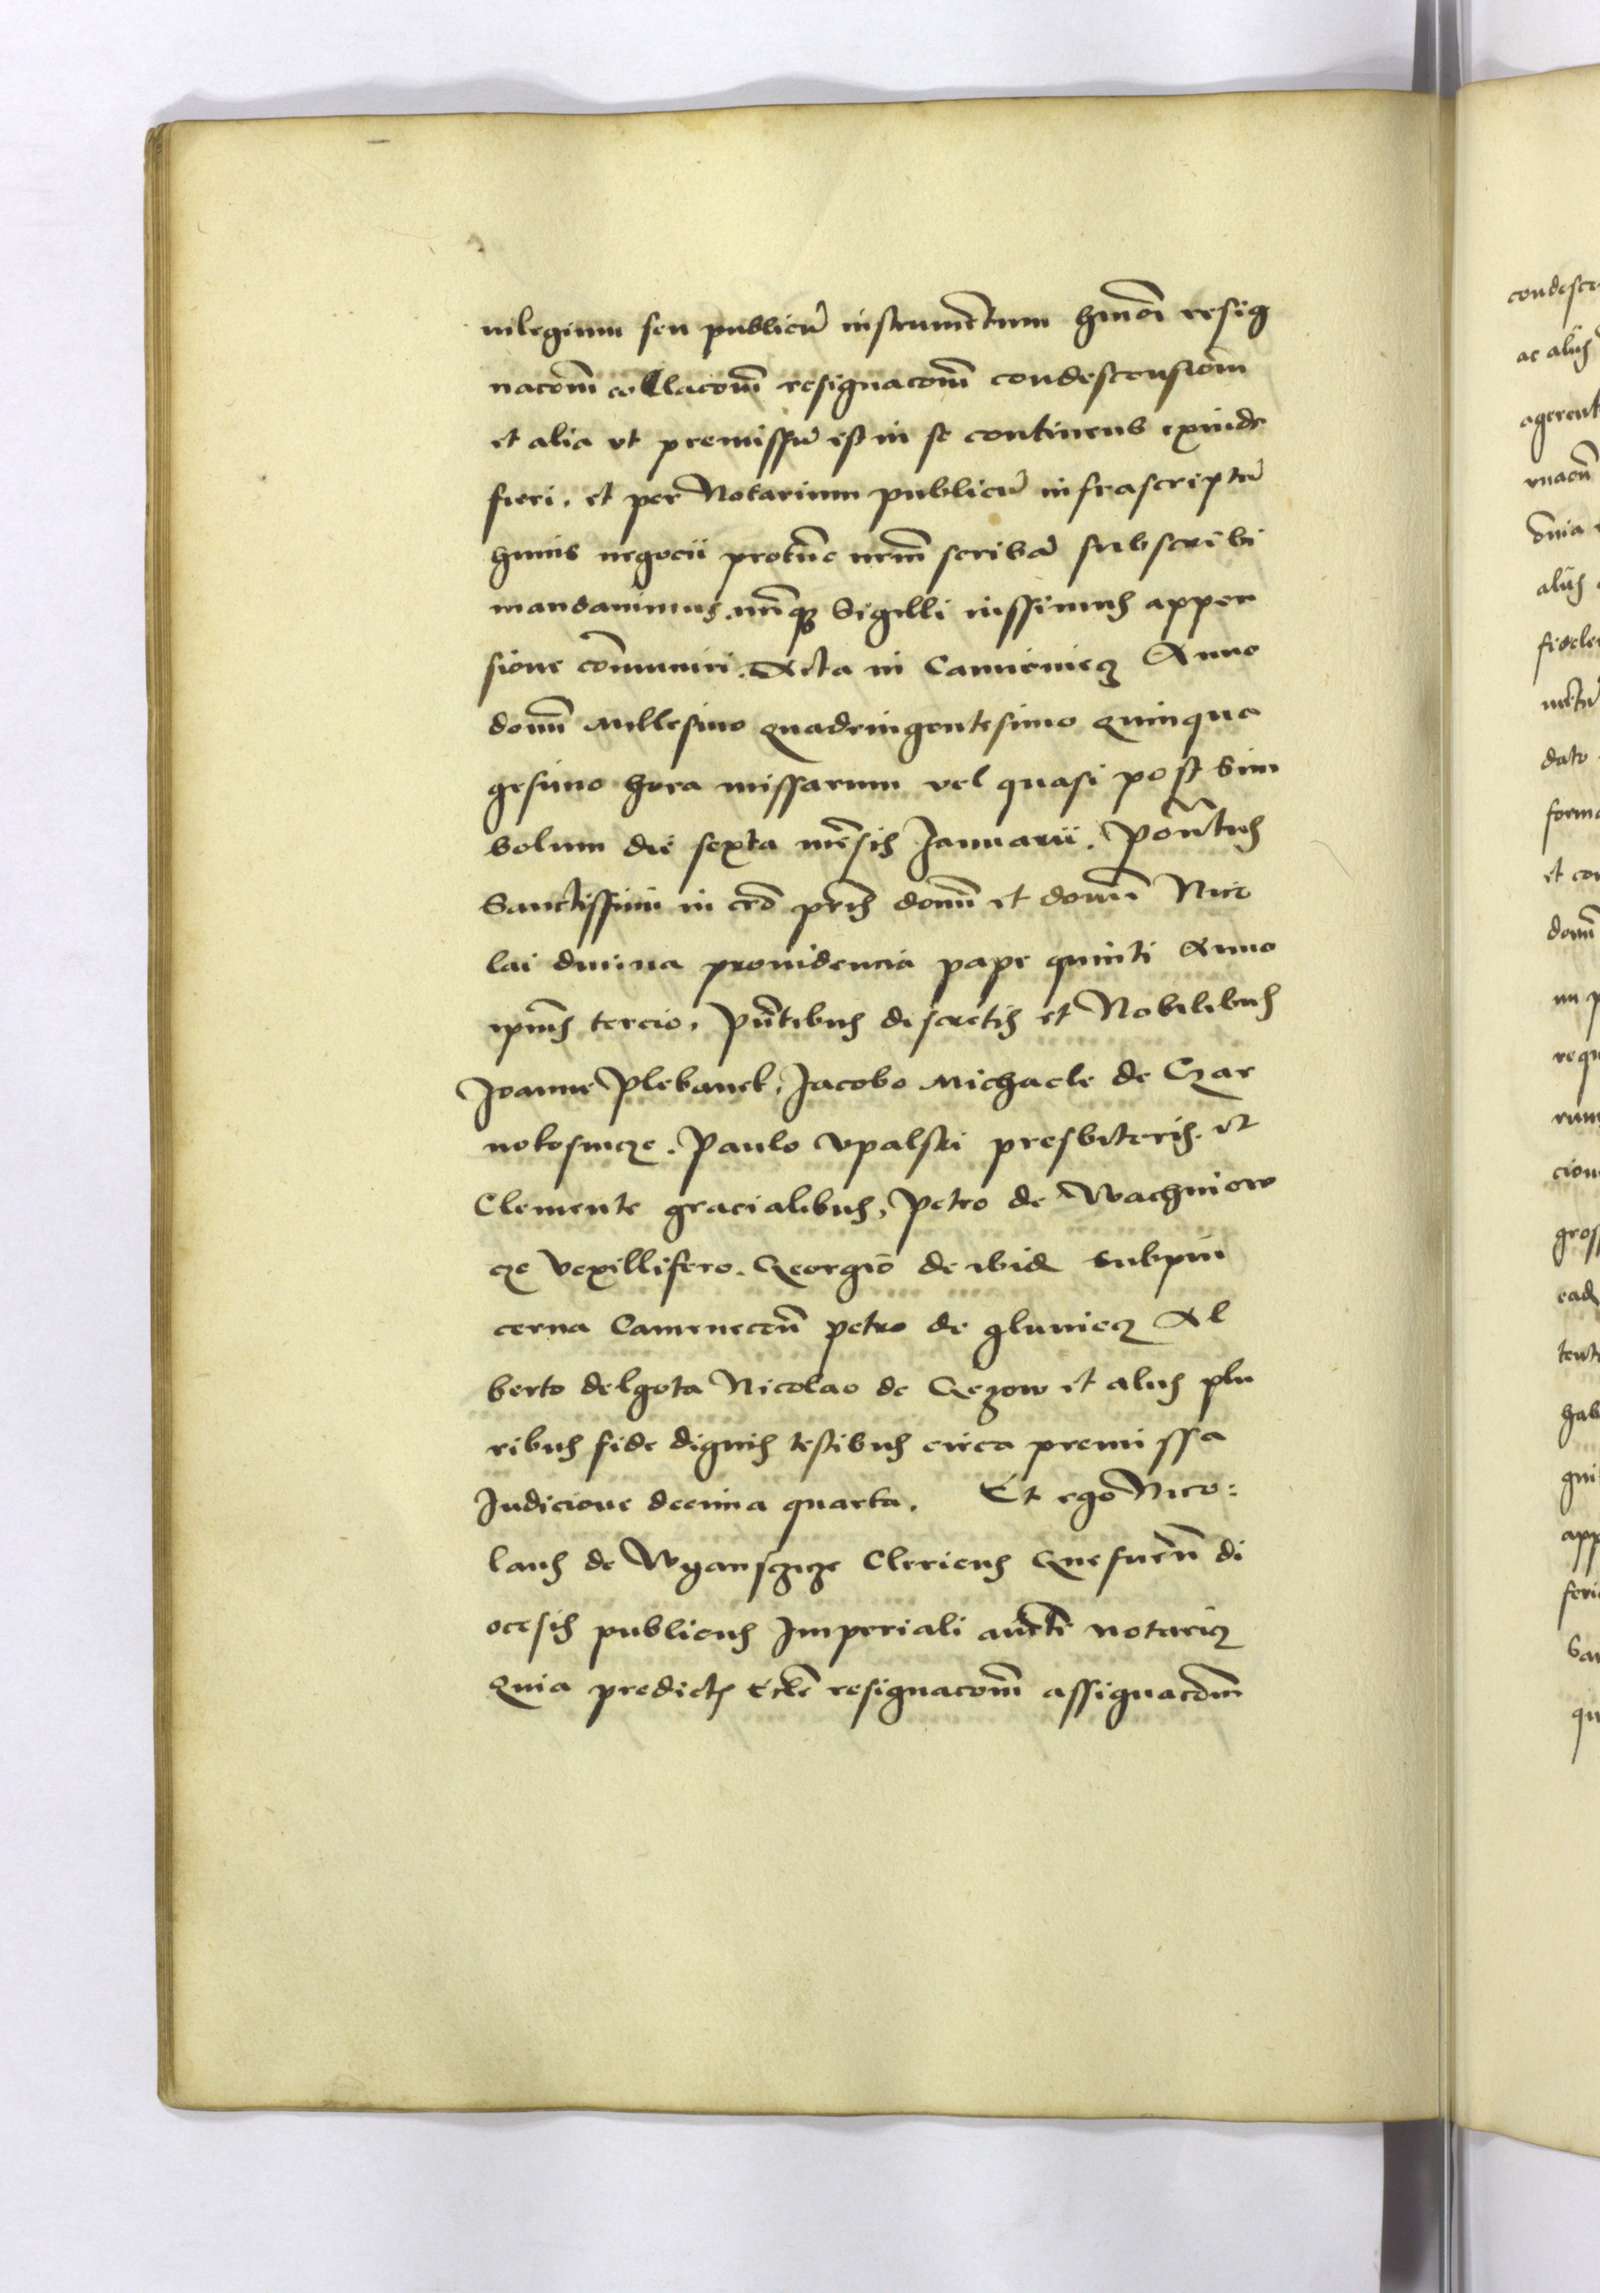 uilegium seu publicū instrumentum hmōi resig
nacoēm collacoēm resignacoēm condescensioēm
et alia vt premissū est in se continens exinde
fieri. et per Notarium publicū infrascriptū
huius negocii protūc nrm̄ scribā subscribi
mandauimus. nrīq; Sigilli iussimus appen
sione cōmuniri. Acta in Camieniecz Anno
domī Millesimo quadringentesimo quinqua
gesimo hora missarum vel quasi post Sim
bolum die sexta mēsis Januarii. Pontūs
Sanctissimi in crō pris domī et domī Nico
lai diuina prouidencia pape quinti Anno
ipius tercio. Pūtibus discretis et Nobilibus
Joanne Plebano. Jacobo Michaele de Czar
nokosincze. Paulo vpalski presbiteris. et
Clemente gracialibus, Petro de Wachniow
cze Vexillifero. Georgio de subpin
cerna Camenecen̄ petro de glun̄iecz Al
berto delgota Nicolao de Gezow et aliis plu
ribus fide dignis testibus circa premissa
Indicione decima quarta. Et ego Nico:
laus de Clericus Gnesnen̄ di
ocesis publicus Imperiali aucte notarius
Quia predicte Eccle resignacoēm assignacoēm
condesce
ac aliis
agerent
omnia
aliis
fidele
dato
forma
et con
domī
requ
cion
gross
ead
hab
app
feri
qu